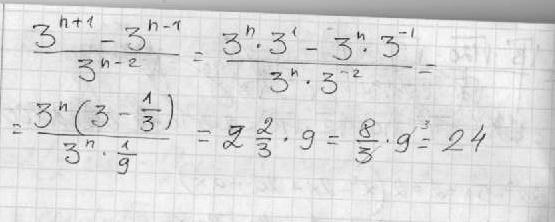 \frac{3^{n+1} - 3^{n-1}}{3^{n-2}} = \frac{3^n \cdot 3^1 - 3^n \cdot 3^{-1}}{3^n \cdot 3^{-2}} =
= \frac{3^n (3 - \frac{1}{3})}{3^n \cdot \frac{1}{9}} = 2 \frac{2}{3} \cdot 9 = \frac{8}{3} \cdot 9^3 = 24